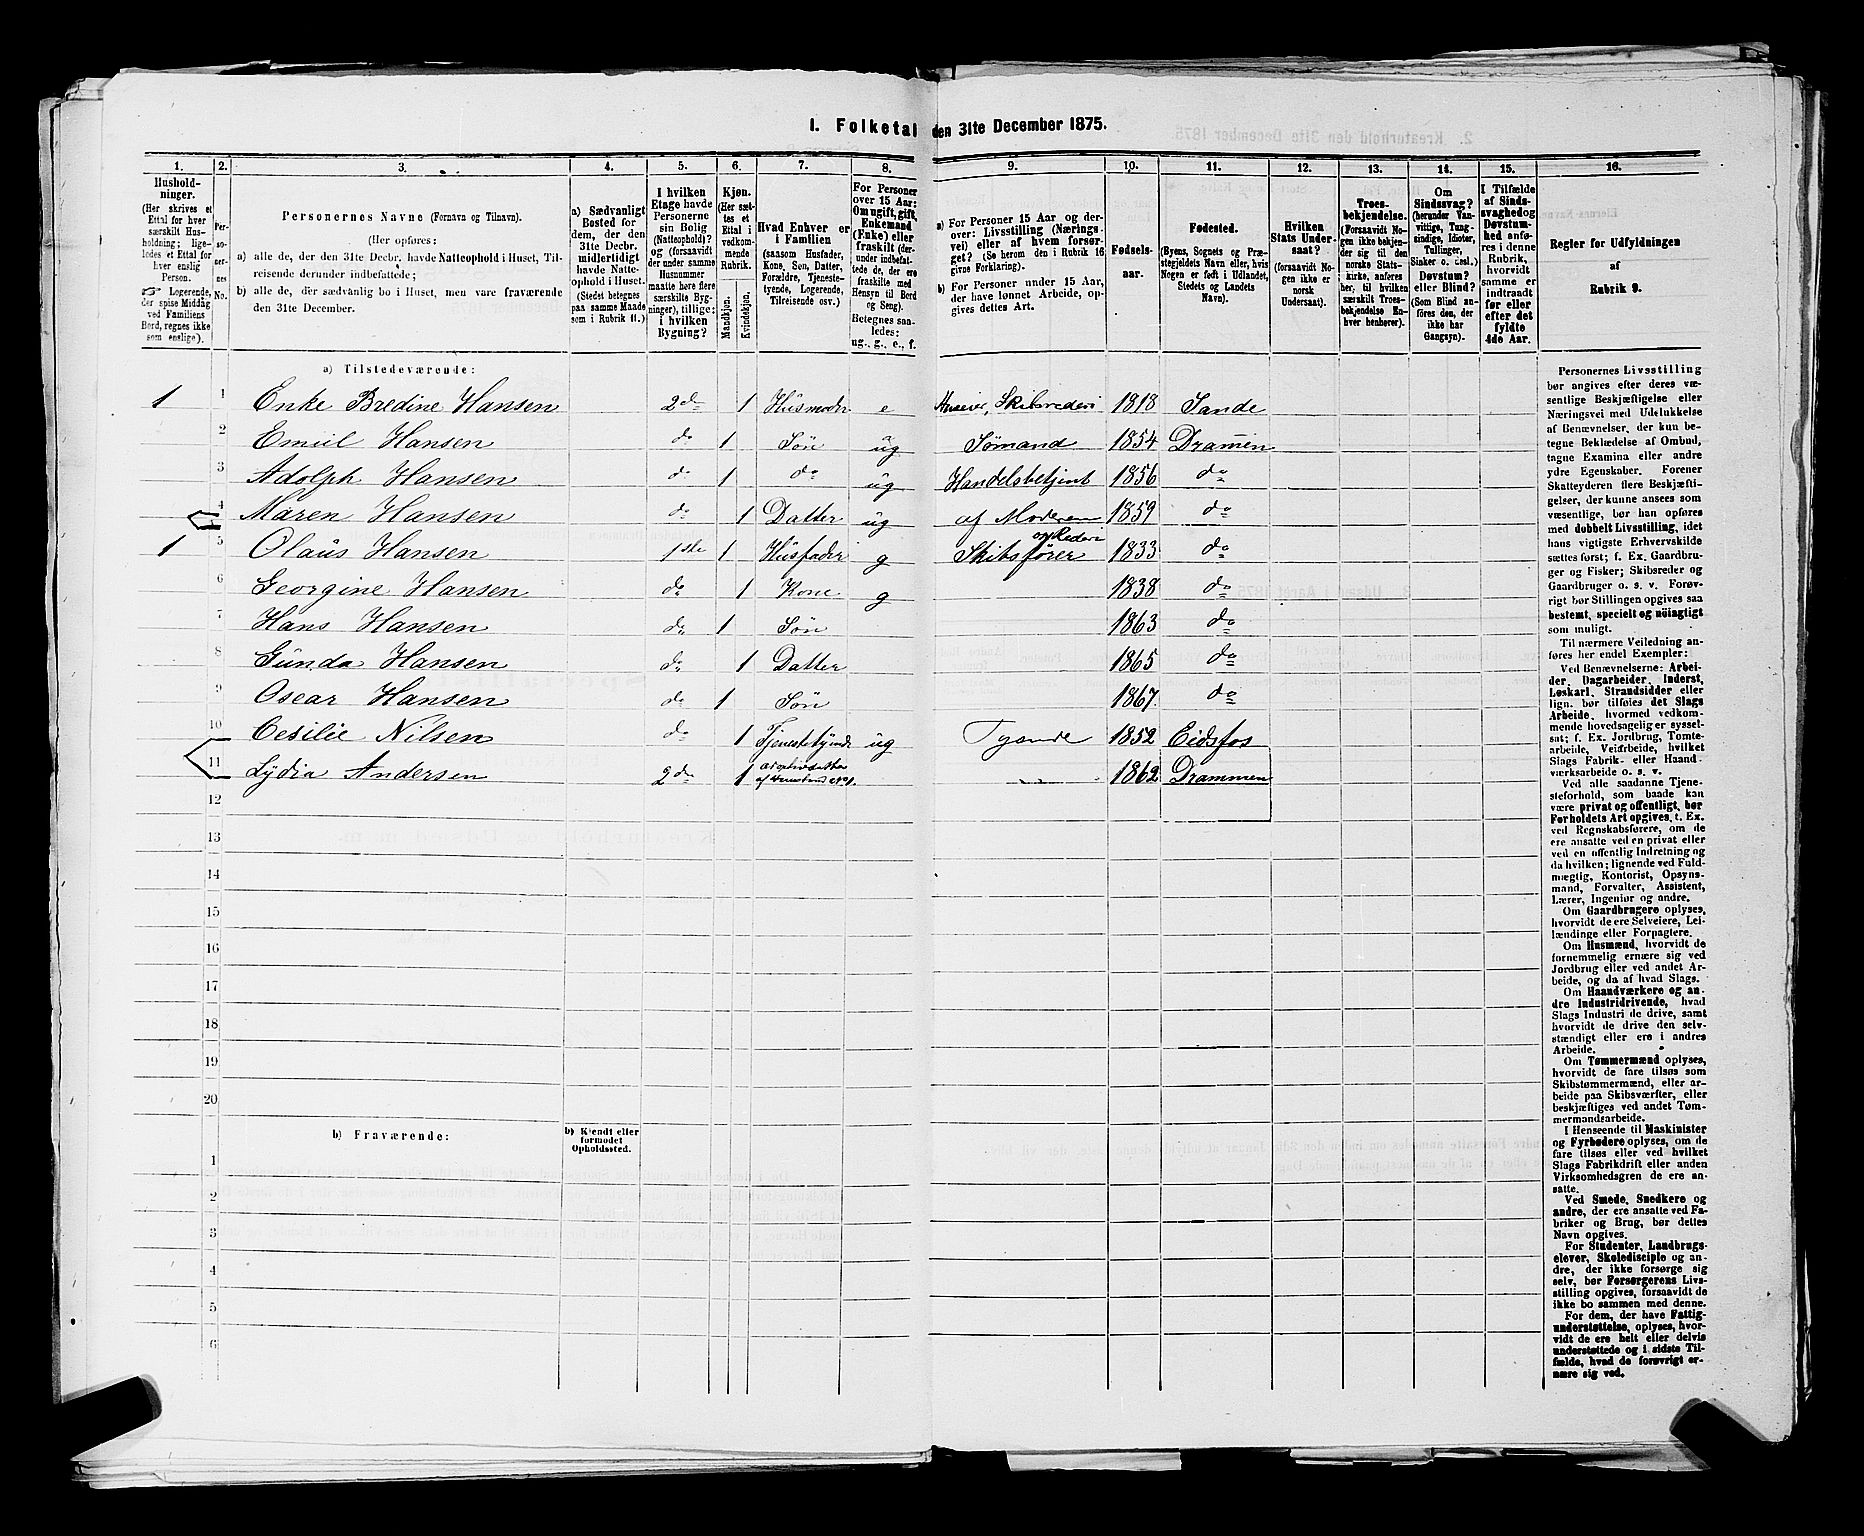 I. Folketal den 31te December 1875.
1. 2. 3. 4. 5. 6. 7. 8. 9. 10. 11. 12. 13. 14. 15. 16.
Hushold-
ninger.
(Her skrives et
Ettal for hver
særskilt Hus-
holdning; lige-
ledes et Ettal for
hver enslig
Person.
☞ Logerende,
der spise Middag
ved Familiens
Bord, regnes ikke
som enslige).
Per-
so-
ner-
nes
No.
Personernes Navne (Fornavn og Tilnavn).
(Her opføres:
a) alle de, der den 31te Decbr. havde Natteophold i Huset, Til-
reisende derunder indbefattede;
b) alle de, der sædvanlig bo i Huset, men vare fraværende
den 31te December.
a) Sædvanligt
Bosted for
dem, der den
31te Decbr.
midlertidigt
havde Natte-
ophold i Huset.
(Stedet betegnes
paa samme Maade
som i Rubrik 11.)
I hvilken
Etage havde
Personerne
sin Bolig
(Natteophold)?
og (forsaavidt
der under samme
Husnummer
maatte høre flere
særskilte Byg-
ninger), tillige:
i hvilken
Bygning?
Kjøn.
(Her sæt-
tes et
Ettal i
vedkom-
mende
Rubrik.
Mandkjøn.
Kvindekjøn.
Hvad Enhver er
i Familien
(saasom Husfader,
Kone, Søn, Datter,
Forældre, Tjeneste-
tyende, Logerende,
Tilreisende osv.)
For Personer
over 15 Aar:
Om ugift, gift,
Enkemand
(Enke) eller
fraskilt (der-
under indbefat-
tede de, der ere
fraskilte med
Hensyn til Bord
og Seng).
Betegnes saa-
ledes:
ug., g., e., f.
a) For Personer 15 Aar og der-
over: Livsstilling (Nærings-
vei) eller af hvem forsør-
get? (Se herom den i Rubrik 16
givne Forklaring).
b) For Personer under 15 Aar,
der have lønnet Arbeide, op-
gives dettes Art.
Fødsels-
aar.
Fødested.
(Byens, Sognets og Præ-
stegjeldets Navn eller, hvis
Nogen er født i Udlandet,
Stedets og Landets
Navn).
Hvilken
Stats Under-
saat?
(forsaavidt No-
gen ikke er
norsk
Undersaat).
Troes-
bekjendelse.
(Forsaavidt No-
gen ikke bekjen-
der sig til den
norske Stats-
kirke, anføres
her, til hvilken
særskilt Troes-
bekjendelse En-
hver henhører).
Om
Sindssvag?
(herunder Van-
vittige, Tung-
sindige, Idioter,
Tullinger,
Sinker o. desl.)
Døvstum?
eller Blind?
(Som Blind an-
føres den, der
ikke har
Gangsyn).
I Tilfælde
af Sinds-
svaghed og
Døvstum-
hed anfø-
res i denne
Rubrik,
hvorvidt
samme er
indtraadt
før eller
efter det
fyldte
4de Aar.
Regler for Udfyldningen
af
Rubrik 9.
a) Tilstedeværende:
1 1 Enke Bredine Hansen 2 do 1 Husmoder e Skibsrederi 1818 Sande
2 Emiil Hansen do 1 Søn ug Sømand 1854 Dramen
3 Adolph Hansen do 1 do ug Handelsbetjent 1856 do
4 Maren Hansen do 1 Datter ug af Moderen 1859 do
1 5 Olaus Hansen 1ste 1 Husfader g Skibsfører og Rederi 1833 do
6 Georgine Hansen do 1 Kone g 1838 do
7 Hans Hansen do 1 Søn 1863 do
8 Gunda Hansen do 1 Datter 1865 do
9 Oscar Hansen do 1 Søn 1867 do
10 Cesilie Nilsen do 1 Tjenestetynde ug Tyende 1852 Eidsfos
11 Lydia Andersen 2 do 1 1862 Drammen
12
13
14
15
16
17
18
19
20
b) Fraværende:
b) Kjendt eller
formodet
Opholdssted.
1
2
3
4
5
6
Personernes Livsstilling
bør angives efter deres væ-
sentlige Beskjæftigelse eller
Næringsvei med Udelukkelse
af Benævnelser, der kun be-
tegne Beklædelse af Ombud,
tagne Examina eller andre
ydre Egenskaber. Forener
Skatteyderen flere Beskjæfti-
gelser, der kunne ansees som
væsentlige, bør han opføres
med dobbelt Livsstilling, idet
hans vigtigste Erhvervskilde
sættes først; f. Ex. Gaardbru-
ger og Fisker; Skibsreder og
Gaardbruger o. s. v. Forøv-
rigt bør Stillingen opgives saa
bestemt, specielt og nöiagtigt
som muligt.
Til nærmere Veiledning an-
føres her endel Exempler:
Ved Benævnelserne: Arbei-
der, Dagarbeider, Inderst,
Løskarl, Strandsidder eller
lign. bør tilføies det Slags
Arbeide, hvormed vedkom-
mende hovedsagelig er syssel-
sat; f. Ex. Jordbrug, Tomte-
arbeide, Veiarbeide, hvilket
Slags Fabrik- eller Haand-
værksarbeide o. s. v.
Ved alle saadanne Tjene-
steforhold, som baade kan
være privat og offentligt, bør
Forholdets Art opgives, t. Ex.
ved Regnskabsførere, om de
ere ansatte ved en privat eller
ved en offentlig Indretning og
da hvilken; lignende ved Fuld-
mægtig, Kontorist, Opsyns-
mand, Forvalter, Assistent,
Lærer, Ingeniør og andre.
Om Gaardbrugere oplyses,
hvorvidt de ere Selveiere, Lei-
lændinge eller Forpagtere.
Om Husmænd, hvorvidt de
fornemmelig ernære sig ved
Jordbrug eller ved andet Ar-
beide, og da af hvad Slags.
Om Haandværkere og an-
dre Industridrivende, hvad
Slags Industri de drive, samt
hvorvidt de drive den selv-
stændigt eller ere i andres
Arbeide.
Om Tømmermænd oplyses,
hvorvidt de fare tilsøs som
Skibstømmermænd, eller ar-
beide paa Skibsværfter, eller
beskjæftiges ved andet Tøm-
mermandsarbeide.
I Henseende til Maskinister
og Fyrbødere oplyses, om de
fare tilsøs eller ved hvilket
Slags Fabrikdrift eller anden
Virksomhedsgren de ere an-
satte.
Ved Smede, Snedkere og
andre, der ere ansatte ved Fa-
briker og Brug, bør dettes
Navn opgives.
For Studenter, Landbrugs-
elever, Skoledisciple og an-
dre, der ikke forsørge sig
selv, bør Forsørgerens Livs-
stilling opgives, forsaavidt de
ikke bo sammen med denne.
For dem, der have Fattig-
understøttelse, oplyses, hvor-
vidt de ere helt eller delvis
understøttede og i sidste Til-
fælde, hvad de forøvrigt er-
nære sig ved.